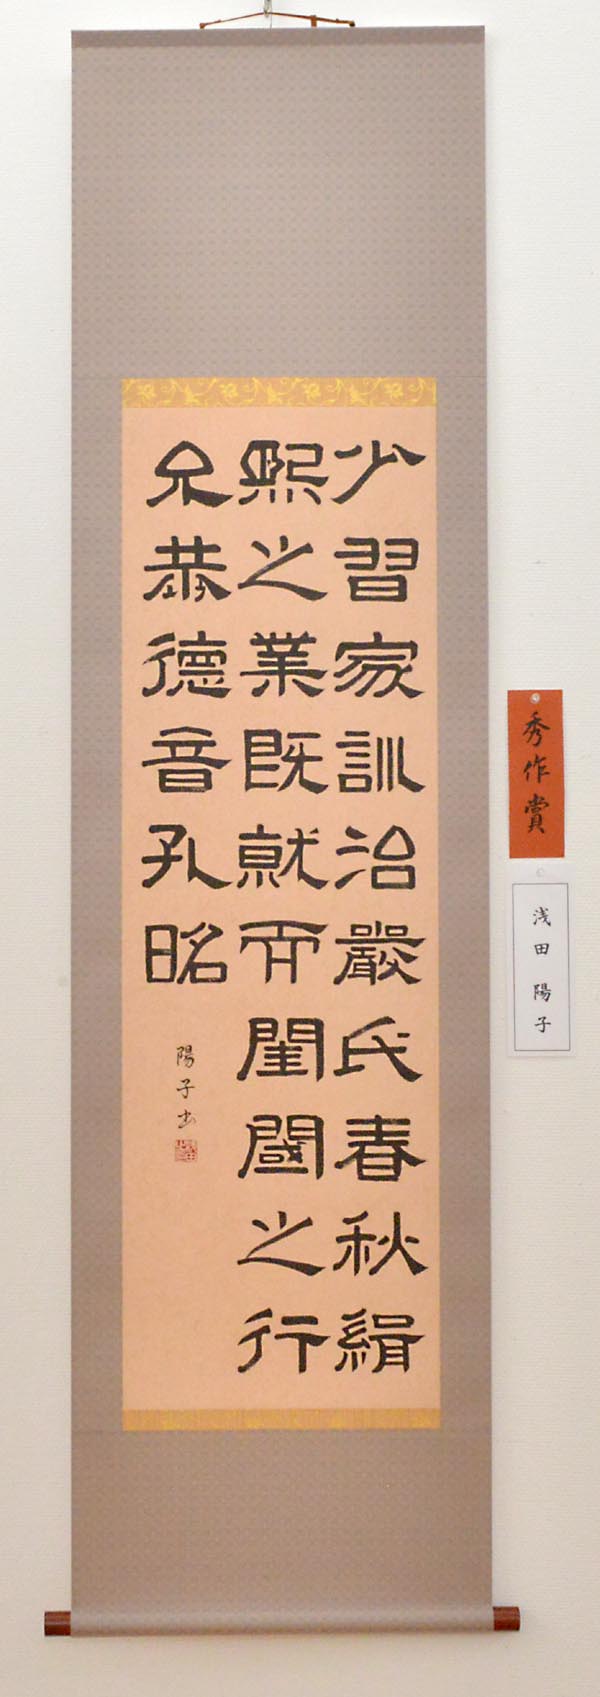 少習家訓治嚴氏春秋絹
熙之業既就而閨閫之行
允恭德音孔昭
陽子書
秀作賞
浅田陽子